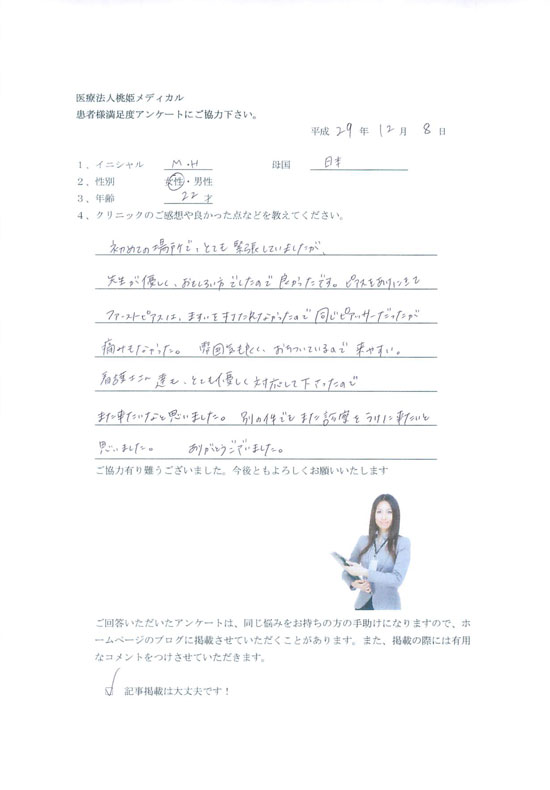 医療法人桃姫メディカル
患者様満足度アンケートにご協力下さい。
平成 29 年 12 月 8 日
1、イニシャル M・H 母国 日本
2、性別 女性・男性
3、年齢 22 才
4、クリニックのご感想や良かった点などを教えてください。
初めての場所で、とても緊張していましたが、
先生が優しく、おもしろい方でしたので良かったです。ピアスをあけにきて
ファーストピアスは、ますいをすてたれなかったので同じピアッサーだったが
痛みもなかった。雰囲気も良く、おちついているので来やすい。
看護士さん達も、とても優しく対応して下さったので
また来たいなと思いました。別の件でもまた診察をうけに来たいと
思いました。ありがとうございました。
ご協力有り難うございました。今後ともよろしくお願いいたします
ご回答いただいたアンケートは、同じ悩みをお持ちの方の手助けになりますので、ホ
ームページのブログに掲載させていただくことがあります。また、掲載の際には有用
なコメントをつけさせていただきます。
☑ 記事掲載は大丈夫です！